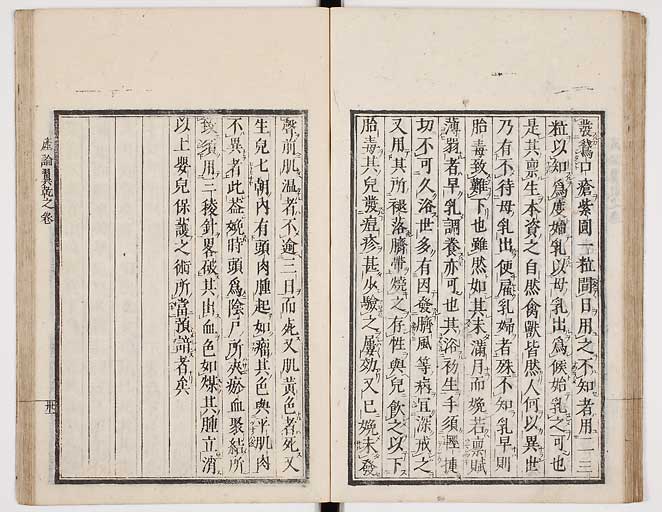 發爲口瘡紫圓一粒間日用之不知者用二三
粒以知爲度媰乳以母乳出爲候始乳之可也
是其稟生本資之自然禽獸皆然人何以異世
乃有不待母乳出便雇乳婦者殊不知乳早則
胎毒致難下也雖然如其未滿月而娩若稟賦
薄弱者早乳調養亦可也其浴初生手須輕捷
切不可久浴世多有因發臍風等病宜深戒之
又用其所褪落臍帶燒之存性與兒飮之以下
胎毒其兒發痘疹甚少驗之屢効又已娩未發
聲前肌溫者不逾三日而死又肌黃色者死又
生兒七朝內有頭肉腫起如瘤其色與平肌肉
不異者此益娩時頭爲陰戶所夾瘀血聚結所
致須用三稜針畧破其出血色如煤其腫立消
以上嬰兒保護之術所當預諳者矣
虛論翼乾之卷
卅